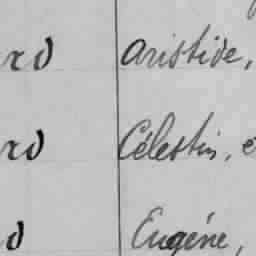 rd Aristide,
rd Célestin, e
d Eugène,